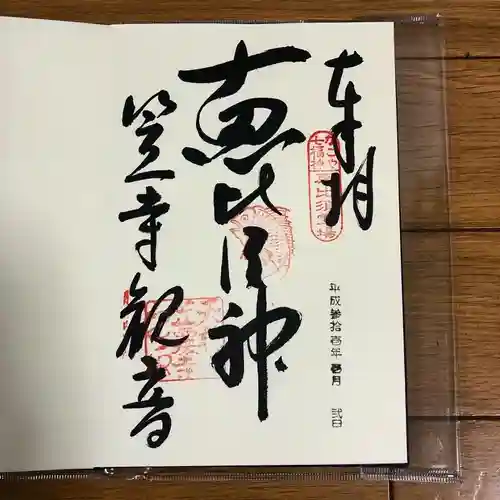 奉拝
平成参拾壱年 壱月 弐日
恵比須神
笠寺観音